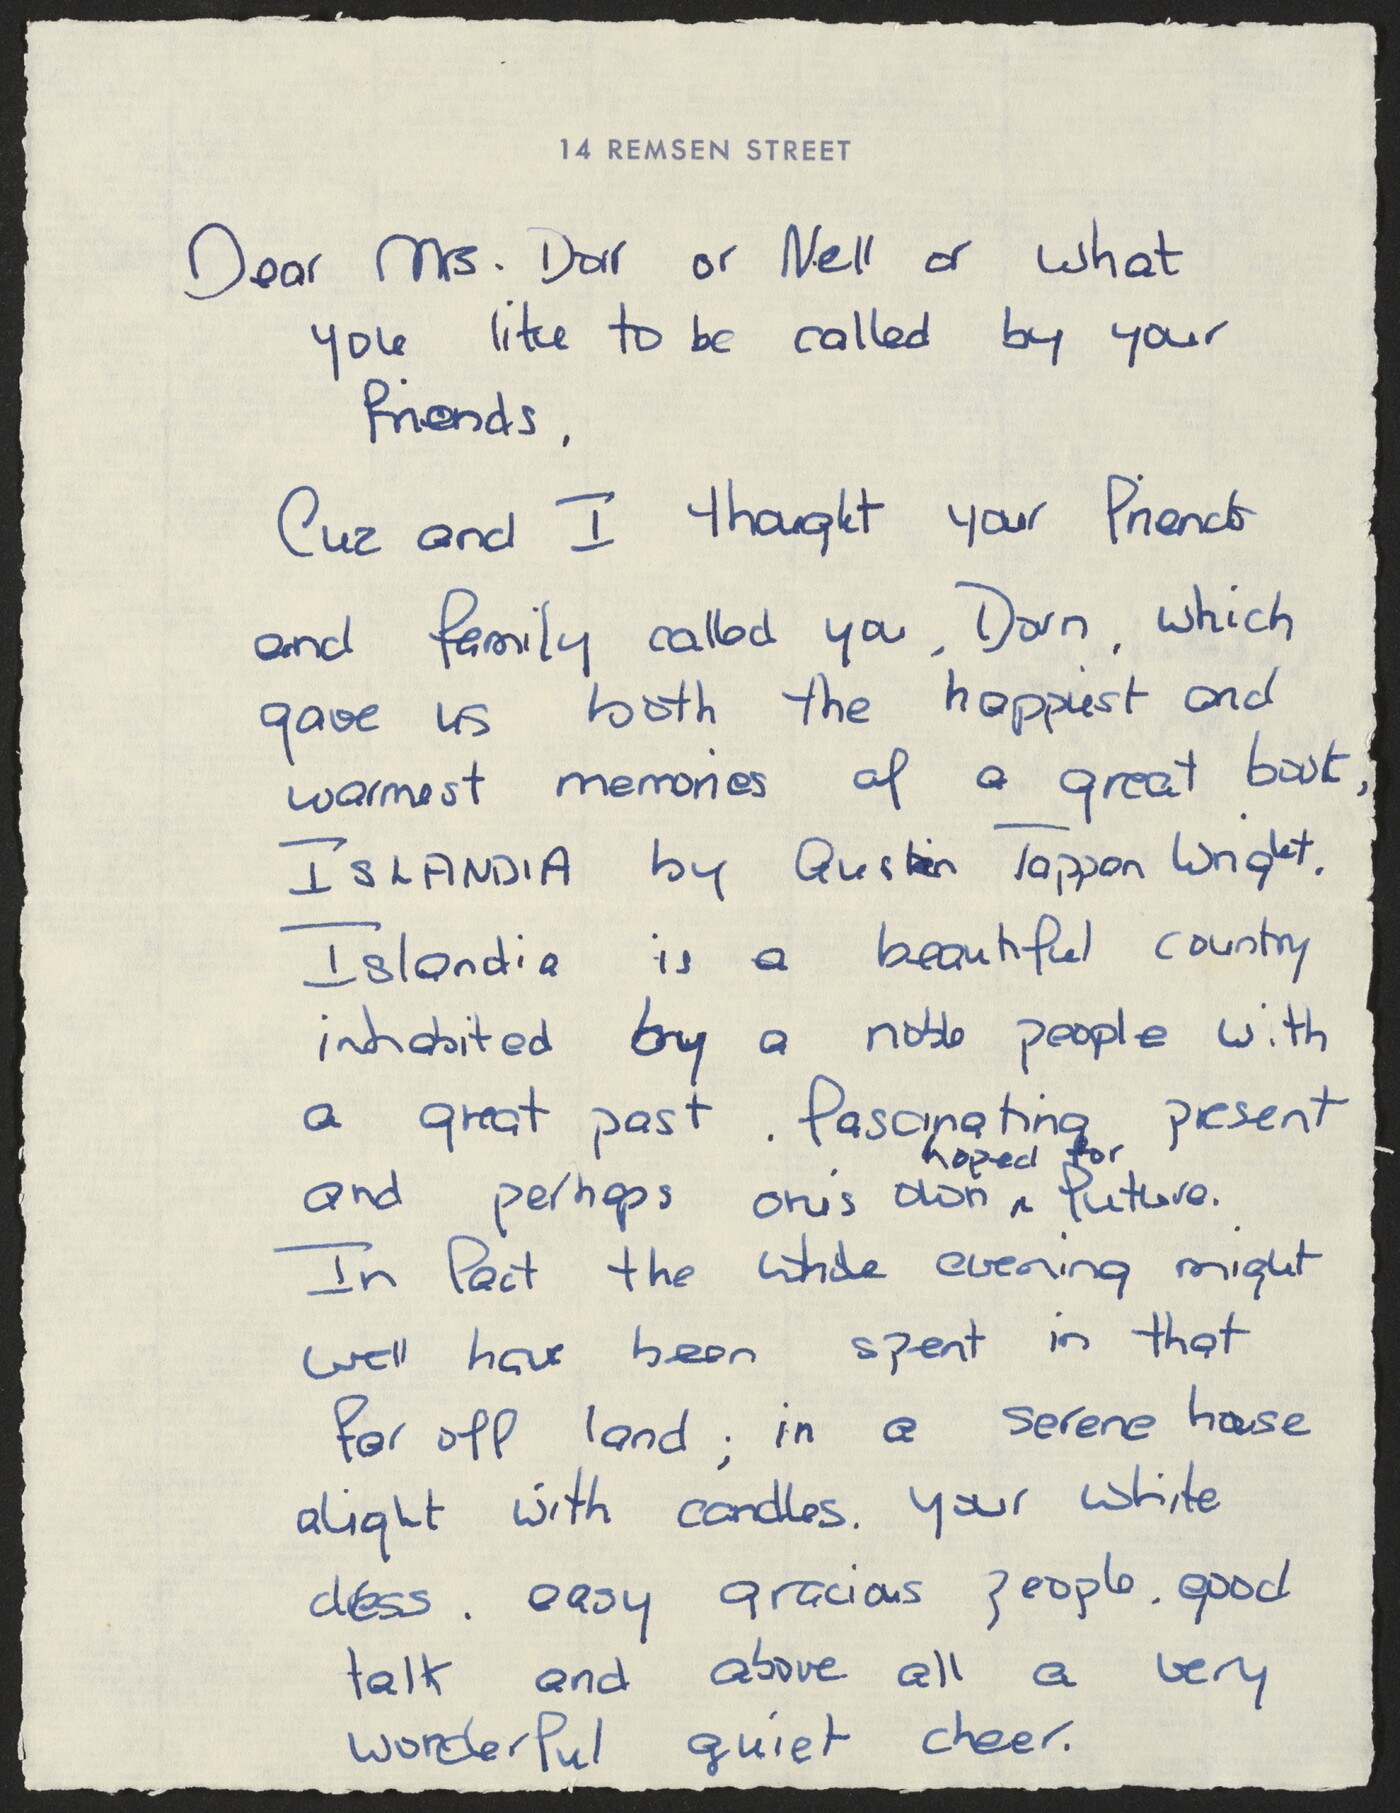 14 REMSEN STREET
Dear Mrs. Dorr or Nell or what
you like to be called by your
friends,
Cuz and I thought your friends
and family called you, Dorn, which
gave us both the happiest and
warmest memories of a great book,
ISLANDIA by Austin Tappan Wright.
Islandia is a beautiful country
inhabited by a noble people with
a great past, fascinating present
hoped for
and perhaps one's own ^ future.
In fact the whole evening might
well have been spent in that
far off land; in a serene house
alight with candles, your white
dress, easy gracious people, good
talk and above all a very
wonderful quiet cheer.